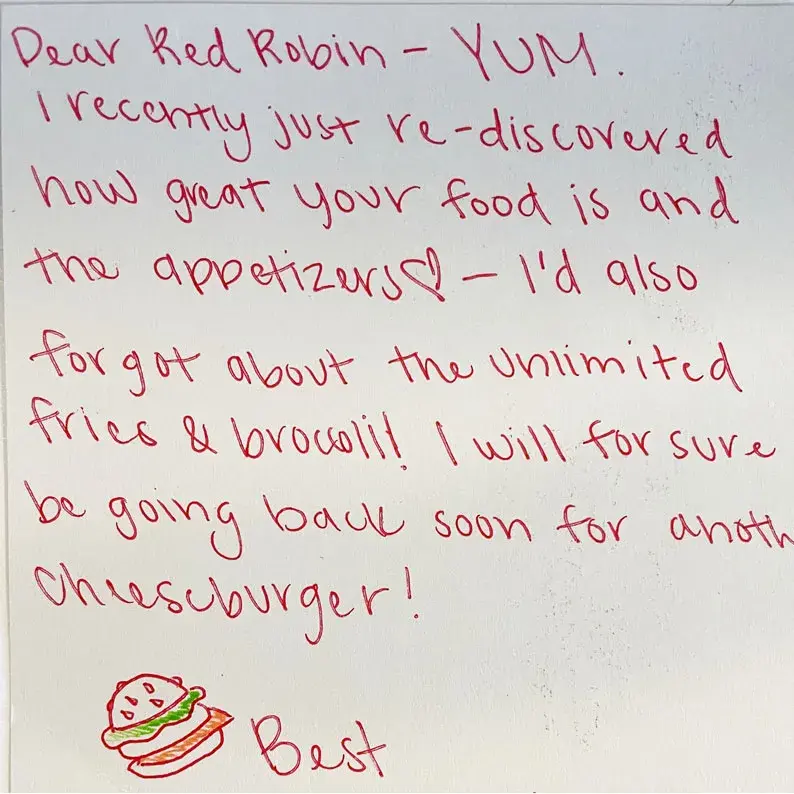 Dear Red Robin - YUM.
I recently just re-discovered
how great your food is and
the appetizers♡ - I'd also
forgot about the unlimited
fries & brocolli! I will for sure
be going back soon for anoth
cheeseburger!
Best